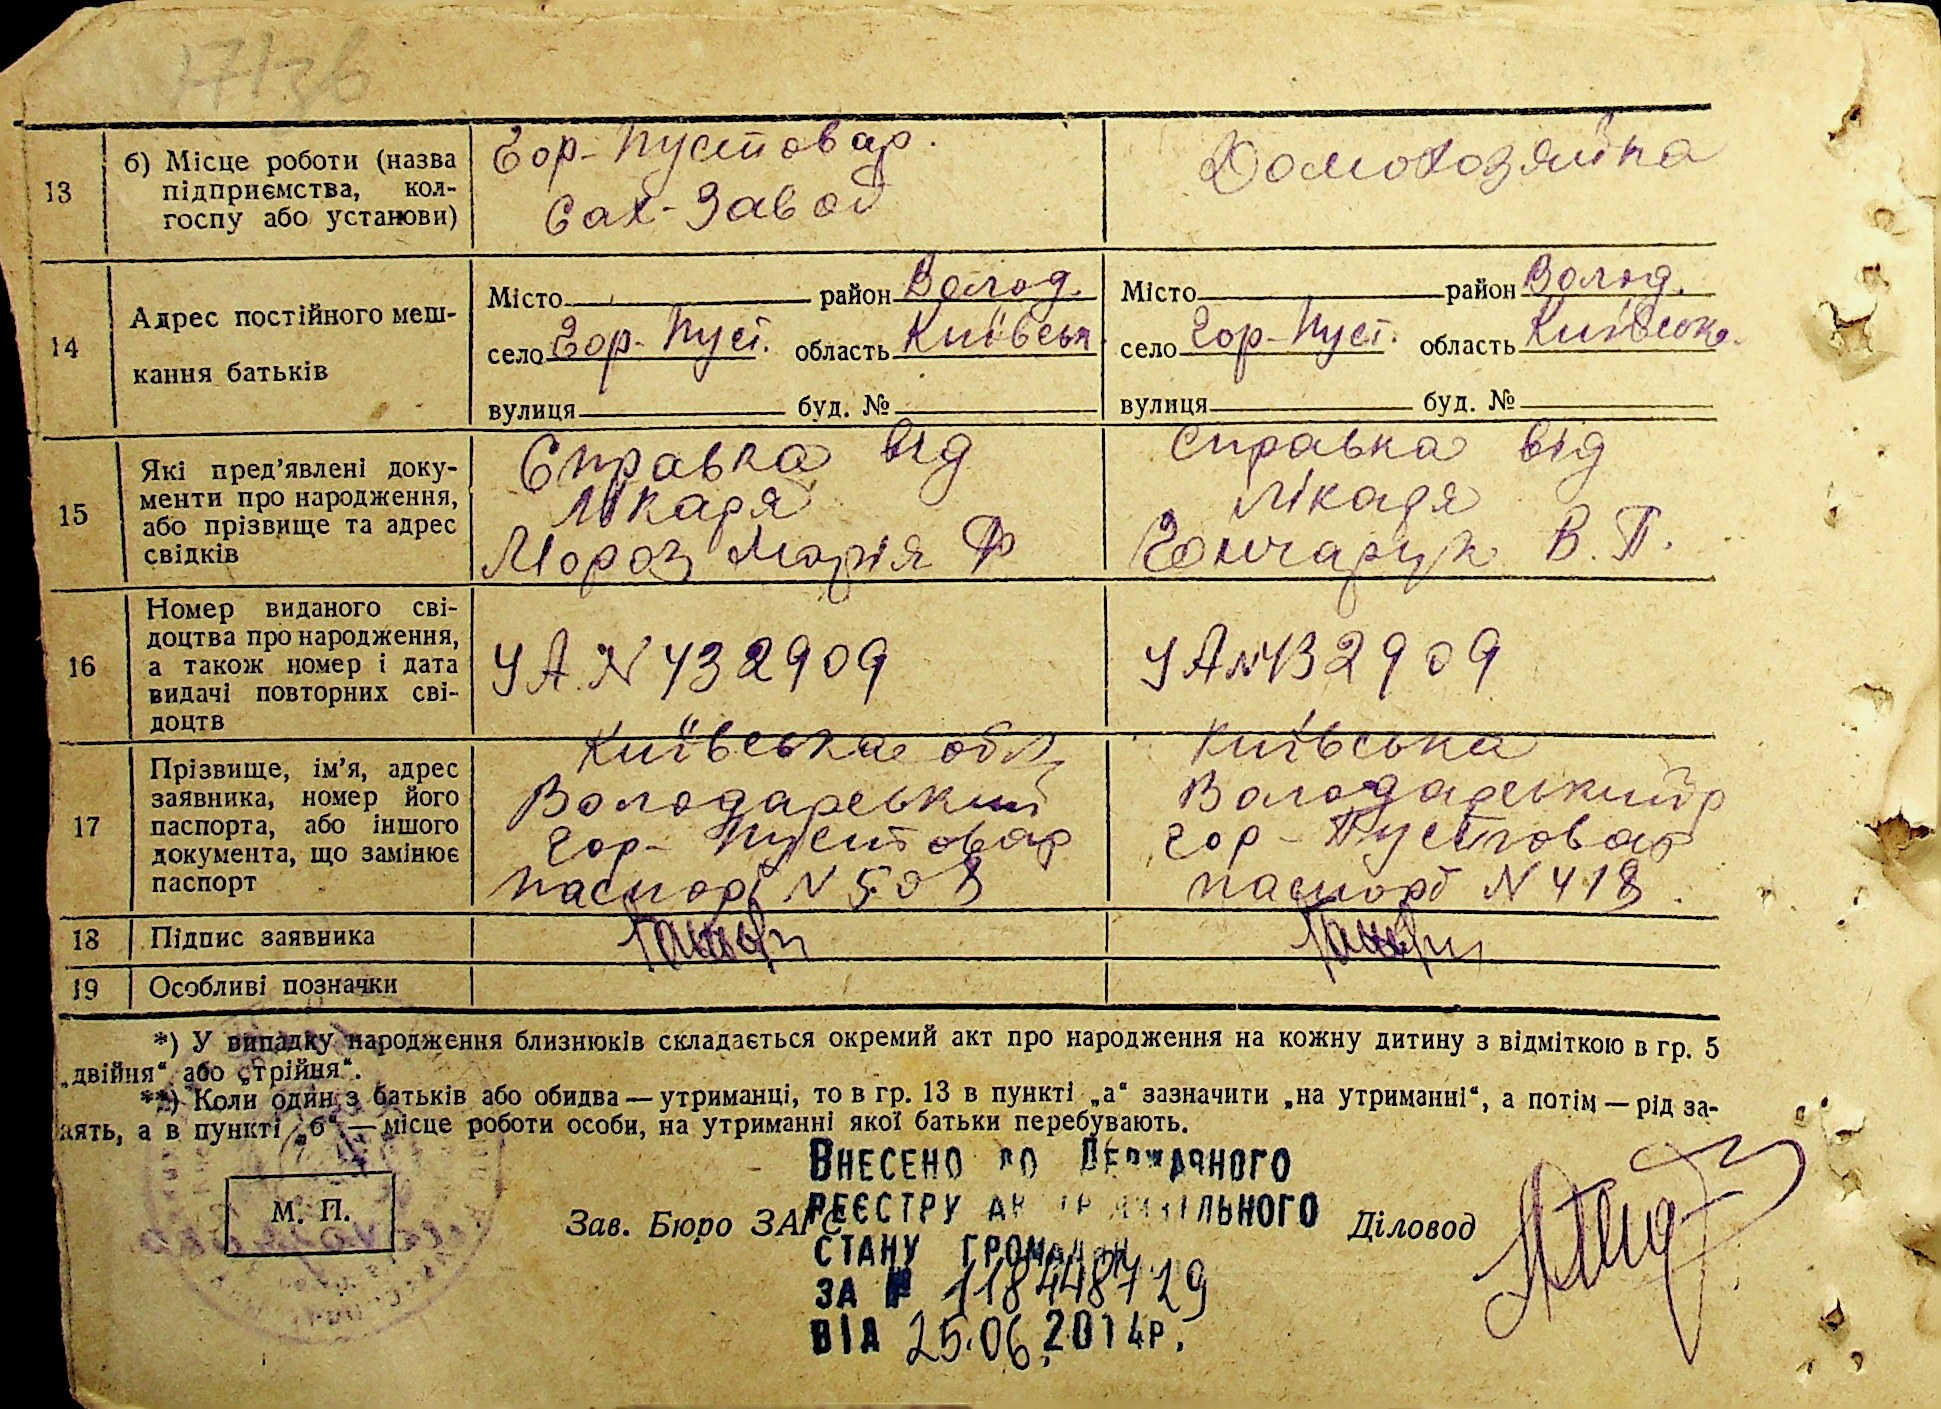 17136
13
б) Місце роботи (назва
підприємства, кол-
госпу або установи)
Гор-Пустовар.
Сах-Завод
Домохозяйка
14
Адрес постійного меш-
кання батьків
Місто район Волод.
село Гор-Пуст. область Київськ.
вулиця буд. №
Місто район Волод.
село Гор-Пуст. область Київсько.
вулиця буд. №
15
Які пред’явлені доку-
менти про народження,
або прізвище та адрес
свідків
Справка від
Лікаря
Мороз Марія Ф
Справка від
Лікаря
Гончарук В. П.
16
Номер виданого сві-
доцтва про народження,
а також номер і дата
видачі повторних сві-
доцтв
УА N 432909
УА N 432909
17
Прізвище, ім’я, адрес
заявника, номер його
паспорта, або іншого
документа, що замінює
паспорт
Київська обл
Володарський
Гор-Пустовар
паспорт N 508
Київська
Володарський р
Гор-Пустовар
паспорт N 418.
18
Підпис заявника
19
Особливі позначки
*) У випадку народження близнюків складається окремий акт про народження на кожну дитину з відміткою в гр. 5
„двійня“ або „трійня“.
**) Коли один з батьків або обидва — утриманці, то в гр. 13 в пункті „а“ зазначити „на утриманні“, а потім — рід за-
нять, а в пункті „б“ — місце роботи особи, на утриманні якої батьки перебувають.
М. П.
Зав. Бюро ЗАГС
Діловод
Внесено до Державного
реєстру актів цивільного
стану громадян
за № 118448729
від 25.06.2014р.